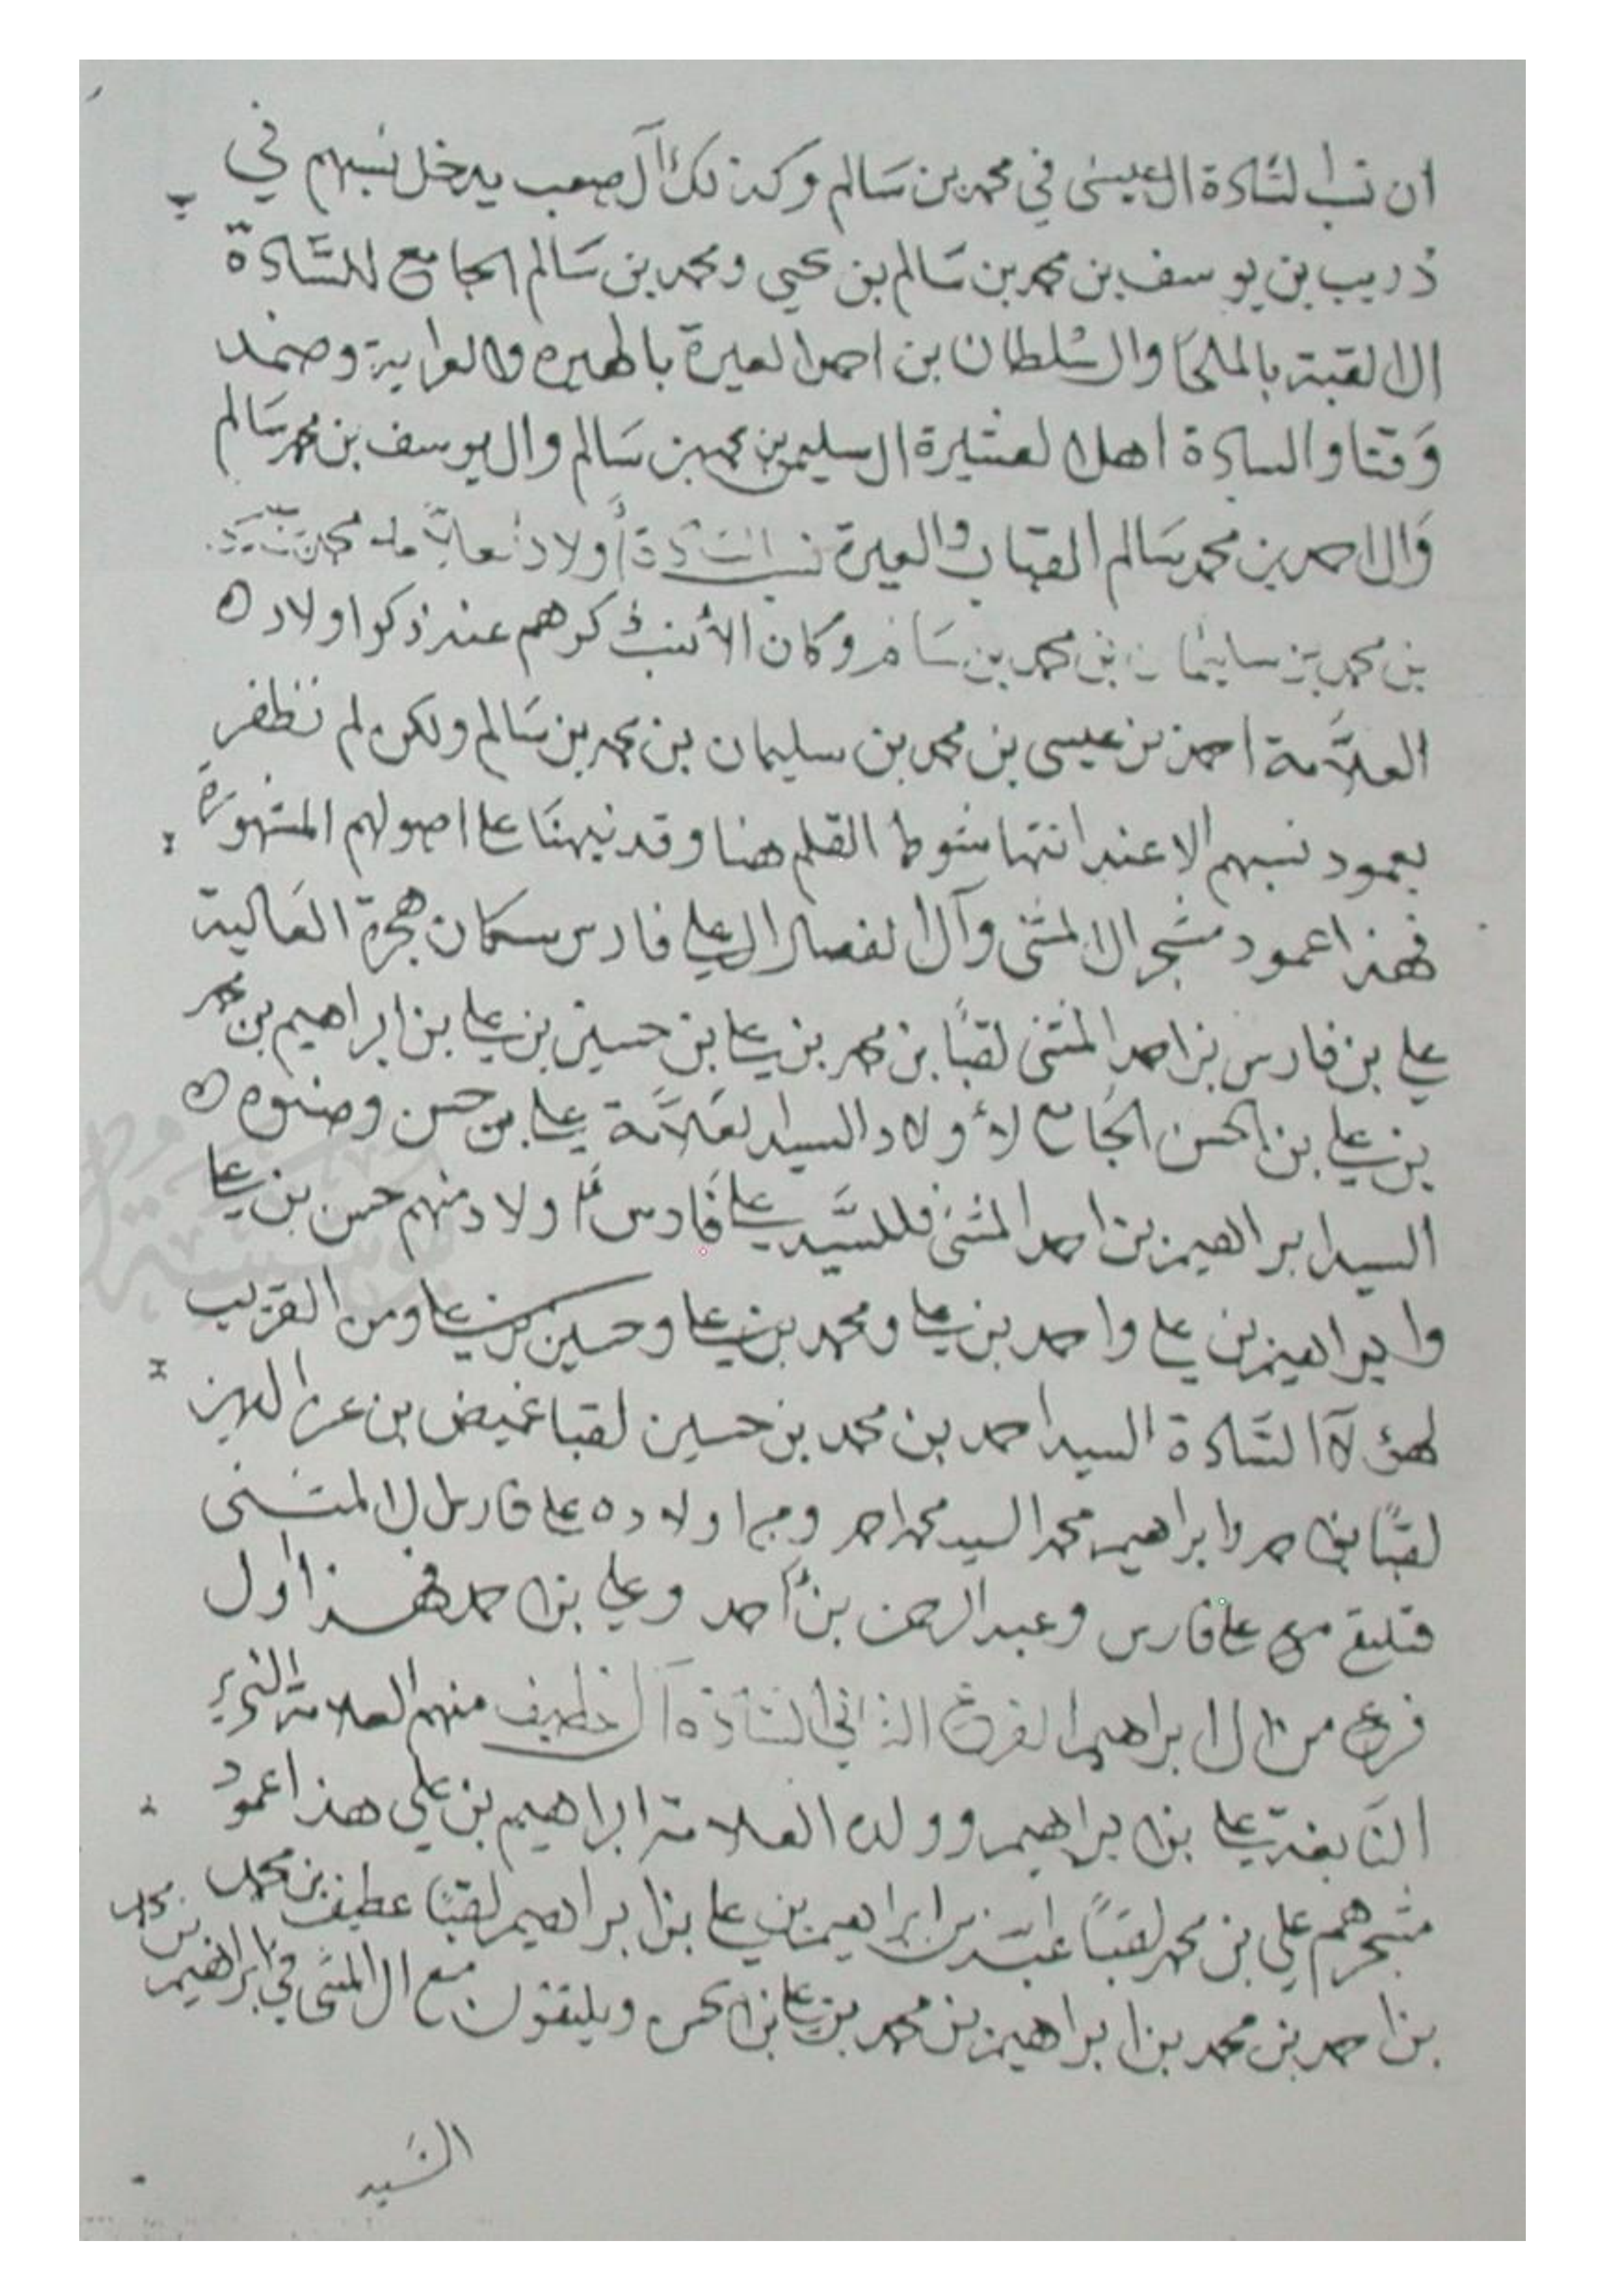 ان نسب السَّادة ال عيسى في محمد بن سَالم وكذلك آل صعب يدخل نسبهم في
ذريب بن يوسف بن محمد بن سَالم بن يحيى ومحمد بن سَالم الجامع للسَّادة
ال القبة بالملحَا وال سُلطان بن احمد
وَقتنا والسادة اهل العشيرة ال سليمن بن محمد بن سَالم وال يوسف بن محمد سَالم
وَال احمد بن محمد سَالم القباب والعيرة نسب السَّادة أولاد
بن محمد بن سليمان بن محمد بن سَالم وكان الأنسب ذكرهم عند ذكر اولاد
العلاَّمة احمد بن عيسى بن محمد بن سليمان بن محمد بن سَالم ولكن لم نظفر
بعمود نسبهم الا عند انتها شوط القلم هنا وقد نبهنَا على اصولهم المشهورَة
فهذا عمود مشجر ال المثنى وآل ال علي فارس سكان هجرة العَالية
علي بن فارس بن احمد المثنى لقبًا بن محمد بن علي بن حسين بن علي بن ابراهيم بن محمد
بن علي بن الحسن الجَامع لأولاد السيد العَلاَّمة علي بن حسن وصنوه
السيد ابراهيم بن احمد المثنى فللسَّيد علي فَارس أولاد منهم حسن بن علي
وابراهيم بن علي واحمد بن علي ومحمد بن علي وحسين بن علي ومن القريب
لهؤلآ السَّادة السيد احمد بن محمد بن حسين لقبا غميض بن عز الدين
لقبًا بن احمد وابراهيم محمد السيد محمد احمد اولاده علي فارس ال المثنى
فتلتقي مع علي فارس وعبد الرحمن بن أحمد وعلي بن احمد فهذا أول
فرع من ال ابراهيم الفرع الثاني السَّادة آل عطيف منهم العلامة
النَابغة علي بن ابراهيم وولده العلامة ابراهيم بن علي هذا عمود
مشجرهم علي بن محمد لقبًا بن ابراهيم بن علي بن ابراهيم لقبًا عطيف بن محمد بن محمد
بن احمد بن محمد بن ابراهيم بن محمد بن علي بن الحسن ويلتقون مع ال المثنى في ابراهيم
السَّيد